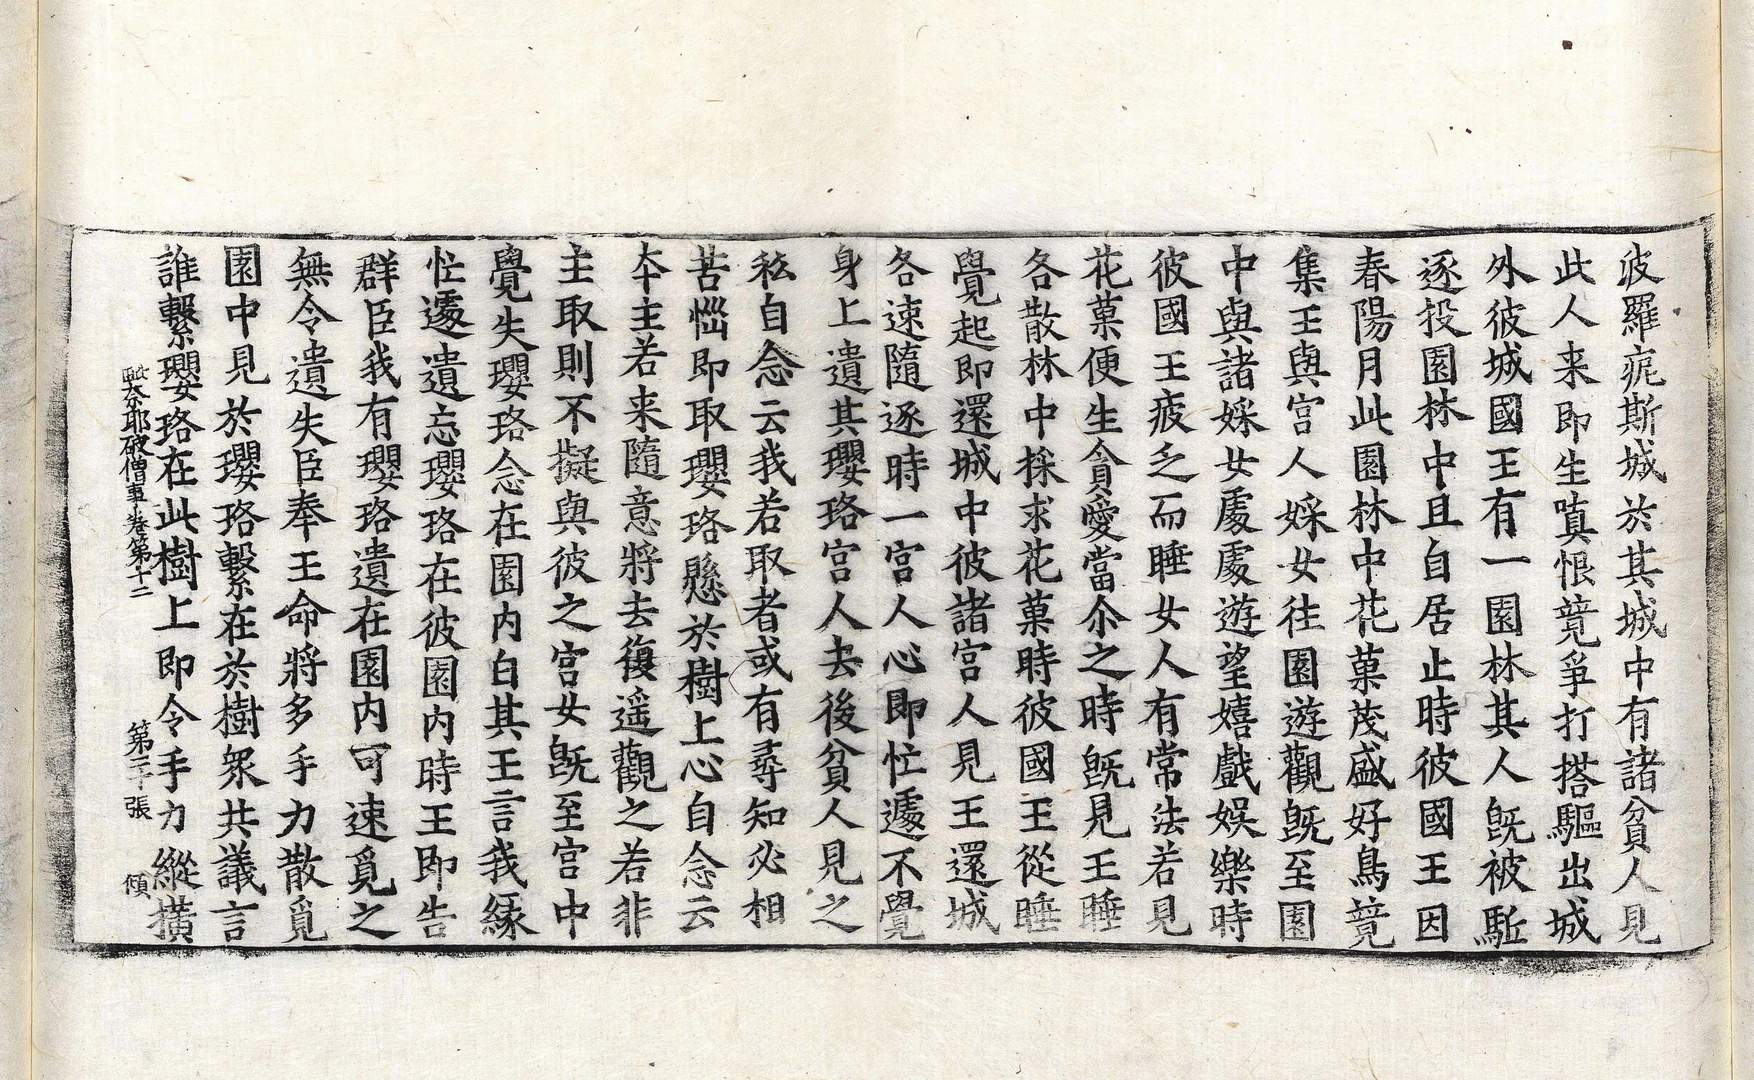 波羅痆斯城於其城中有諸貧人見
此人来即生嗔恨競爭打搭驅出城
外彼城國王有一園林其人旣被駈
逐投園林中且自居止時彼國王因
春陽月此園林中花菓茂盛好鳥競
集王與宮人婇女往園遊觀旣至園
中與諸婇女處處遊望嬉戲娛樂時
彼國王疲乏而睡女人有常法若見
花菓便生貪愛當尒之時旣見王睡
各散林中採求花菓時彼國王從睡
覺起即還城中彼諸宮人見王還城
各速隨逐時一宮人心即忙遽不覺
身上遺其瓔珞宮人去後貧人見之
私自念云我若取者或有尋知必相
苦惱即取瓔珞懸於樹上心自念云
夲主若来隨意將去復遥觀之若非
主取則不擬與彼之宮女旣至宮中
覺失瓔珞念在園内白其王言我緣
忙遽遺忘瓔珞在彼園内時王即告
群臣我有瓔珞遺在園内可速覓之
無令遺失臣奉王命將多手力散覓
園中見於瓔珞繫在於樹衆共議言
誰繫瓔珞在此樹上即令手力縱撗
奈耶破僧事卷第十二 第二十張 傾